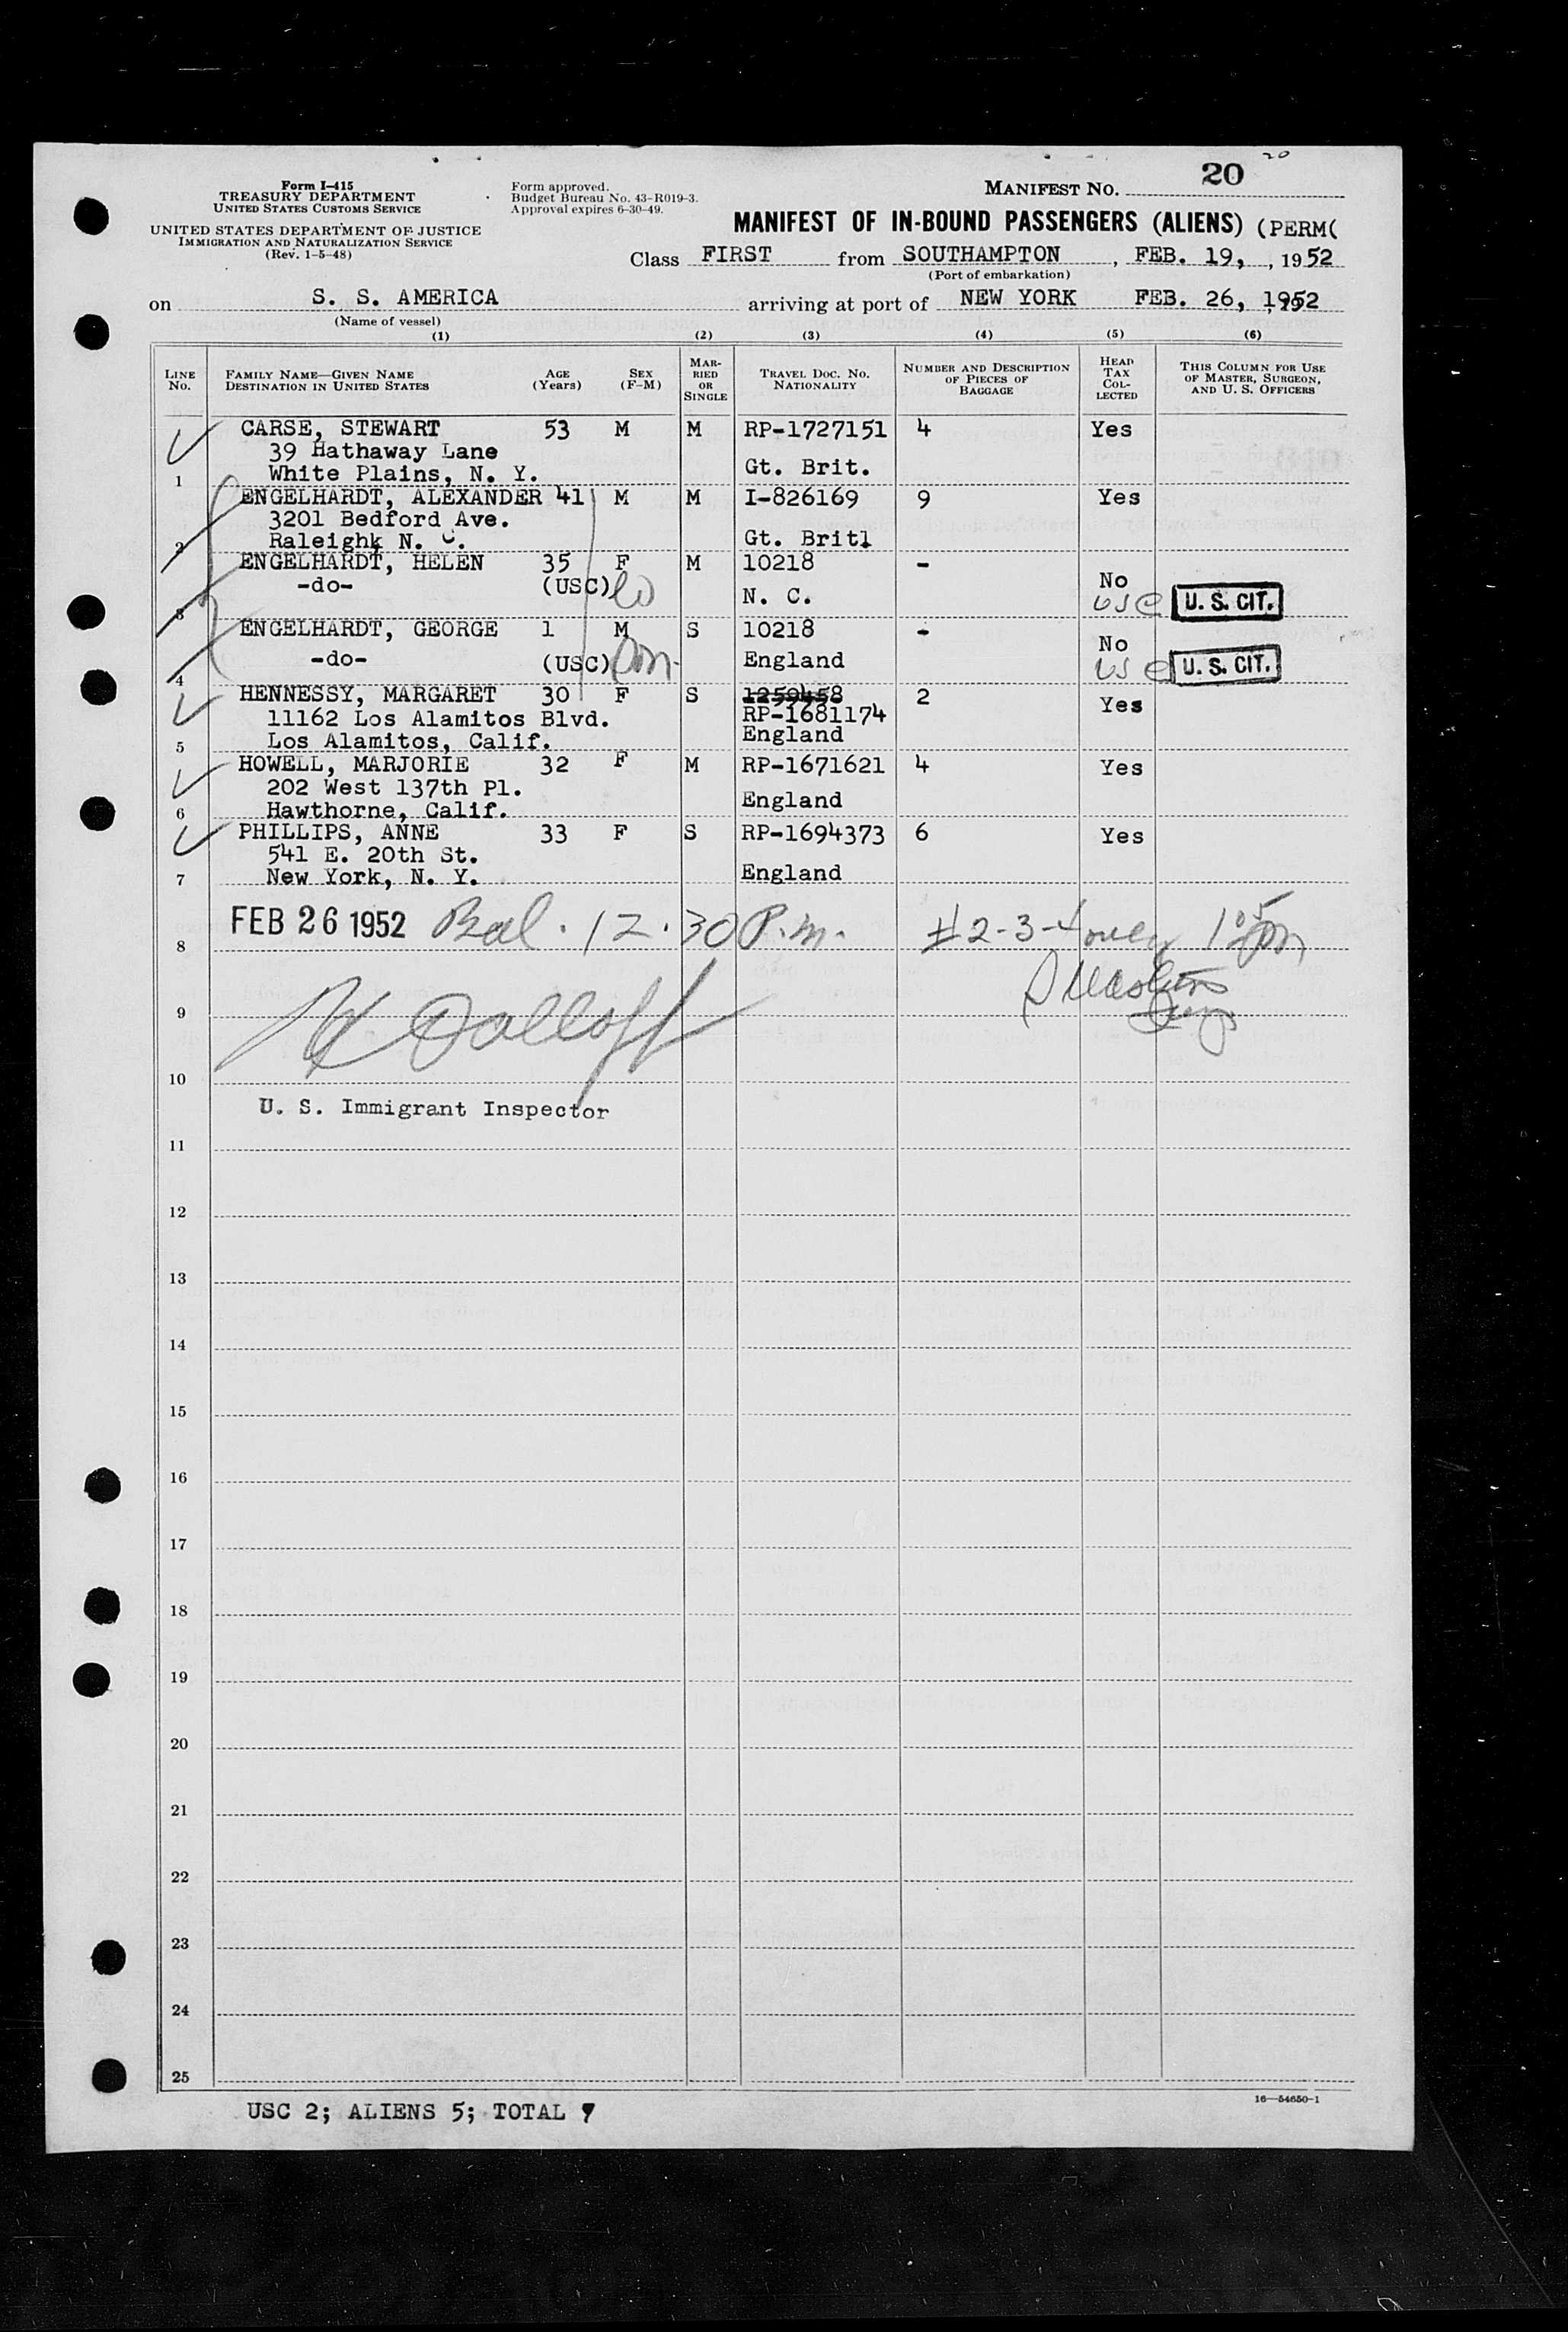 20
Form I-415
TREASURY DEPARTMENT
UNITED STATES CUSTOMS SERVICE
UNITED STATES DEPARTMENT OF JUSTICE
IMMIGRATION AND NATURALIZATION SERVICE
(Rev. 1-5-48)
Form approved.
Budget Bureau No. 43-R019-3.
Approval expires 6-30-49.
MANIFEST NO. 20
MANIFEST OF IN-BOUND PASSENGERS (ALIENS) (PERM(
Class FIRST from SOUTHAMPTON, FEB. 19, , 1952
(Port of embarkation)
on S. S. AMERICA arriving at port of NEW YORK FEB. 26, 1952
(Name of vessel)
(1) (2) (3) (4) (5) (6)
LINE No. FAMILY NAME—GIVEN NAME DESTINATION IN UNITED STATES AGE (Years) SEX (F-M) MARRIED OR SINGLE TRAVEL DOC. NO. NATIONALITY NUMBER AND DESCRIPTION OF PIECES OF BAGGAGE HEAD TAX COLLECTED THIS COLUMN FOR USE OF MASTER, SURGEON, AND U. S. OFFICERS
CARSE, STEWART 53 M M RP-1727151 4 Yes
39 Hathaway Lane
1 White Plains, N. Y. Gt. Brit.
ENGELHARDT, ALEXANDER 41 M M I-826169 9 Yes
3201 Bedford Ave.
2 Raleighk N. C. Gt. Britl
ENGELHARDT, HELEN 35 F M 10218 -
-do- (USC) N. C. No
3 USC U. S. CIT.
ENGELHARDT, GEORGE 1 M S 10218 -
-do- (USC) England No
4 USC U. S. CIT.
HENNESSY, MARGARET 30 F S 1259458 2 Yes
11162 Los Alamitos Blvd. RP-1681174
5 Los Alamitos, Calif. England
HOWELL, MARJORIE 32 F M RP-1671621 4 Yes
202 West 137th Pl.
6 Hawthorne, Calif. England
PHILLIPS, ANNE 33 F S RP-1694373 6 Yes
541 E. 20th St.
7 New York, N. Y. England
8 FEB 26 1952 Bal. 12.30 P.m. #2-3-4 only
9
10
U. S. Immigrant Inspector
11
12
13
14
15
16
17
18
19
20
21
22
23
24
25
16—54650-1
USC 2; ALIENS 5; TOTAL 7